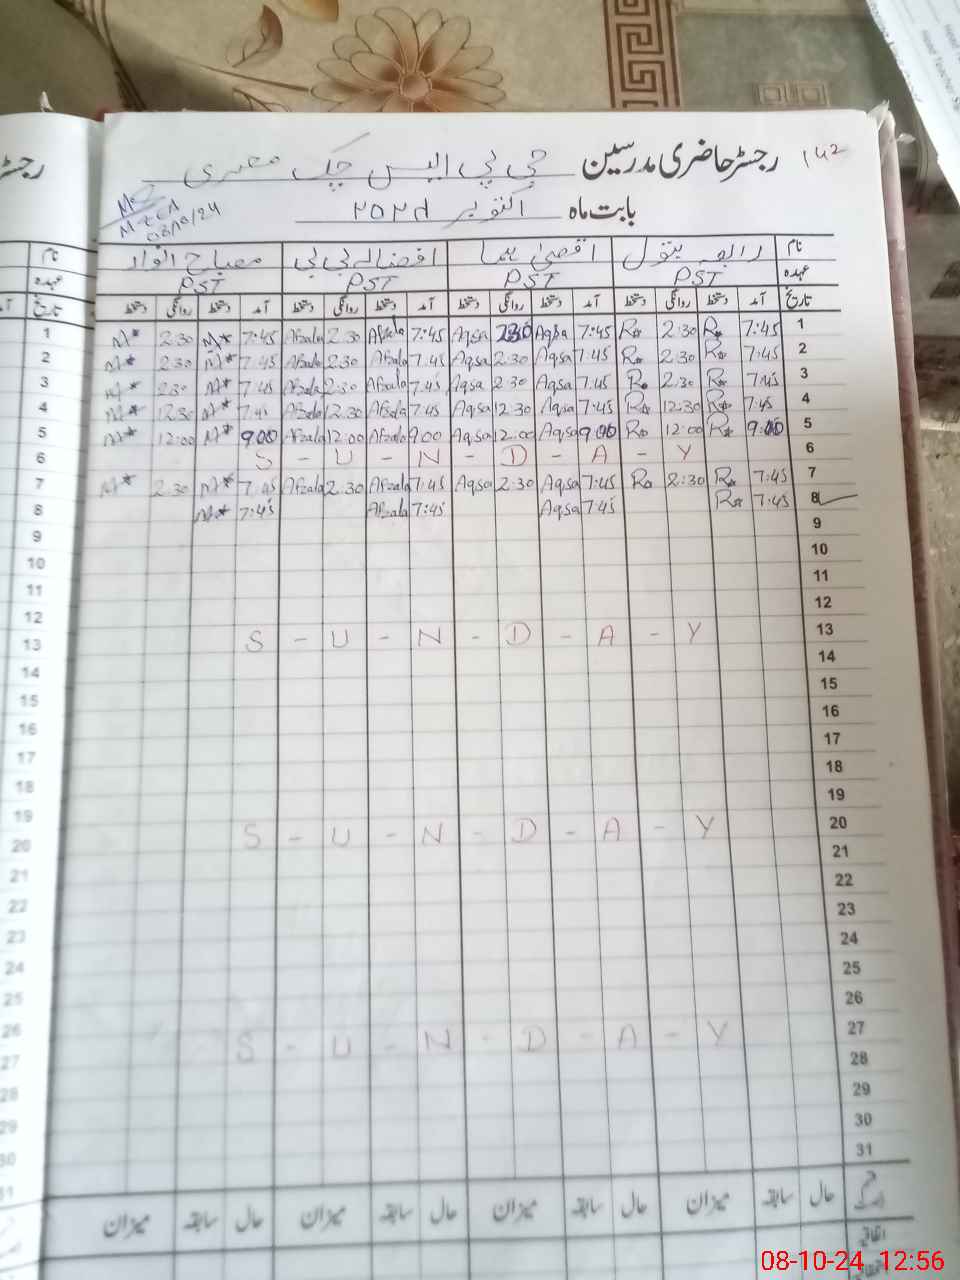 رجسٹر حاضری مدرسین جی پی ایس چک مصری 142
بابت ماہ اکتوبر 2024
08/10/24
نام رابعہ بتول اقصیٰ افضالہ بی بی مصباح
عہدہ PST PST PST PST
تاریخ آمد دستخط روانگی دستخط آمد دستخط روانگی دستخط آمد دستخط روانگی دستخط آمد دستخط روانگی دستخط
1 M* 2:30 M* 7:45 Afzala 2:30 Afzala 7:45 Aqsa 2:30 Aqsa 7:45 R* 2:30 R* 7:45 1
2 M* 2:30 M* 7:45 Afzala 2:30 Afzala 7:45 Aqsa 2:30 Aqsa 7:45 R* 2:30 R* 7:45 2
3 M* 2:30 M* 7:45 Afzala 2:30 Afzala 7:45 Aqsa 2:30 Aqsa 7:45 R* 2:30 R* 7:45 3
4 M* 12:30 M* 7:45 Afzala 12:30 Afzala 7:45 Aqsa 12:30 Aqsa 7:45 R* 12:30 R* 7:45 4
5 M* 12:00 M* 9:00 Afzala 12:00 Afzala 9:00 Aqsa 12:00 Aqsa 9:00 R* 12:00 R* 9:00 5
6 S - U - N - D - A - Y 6
7 M* 2:30 M* 7:45 Afzala 2:30 Afzala 7:45 Aqsa 2:30 Aqsa 7:45 R* 2:30 R* 7:45 7
8 M* 7:45 Afzala 7:45 Aqsa 7:45 R* 7:45 8
9 9
10 10
11 11
12 12
13 S - U - N - D - A - Y 13
14 14
15 15
16 16
17 17
18 18
19 19
20 S - U - N - D - A - Y 20
21 21
22 22
23 23
24 24
25 25
26 26
27 S - U - N - D - A - Y 27
28 28
29 29
30 30
31 31
حال سابقہ میزان حال سابقہ میزان حال سابقہ میزان حال سابقہ میزان
08-10-24 12:56